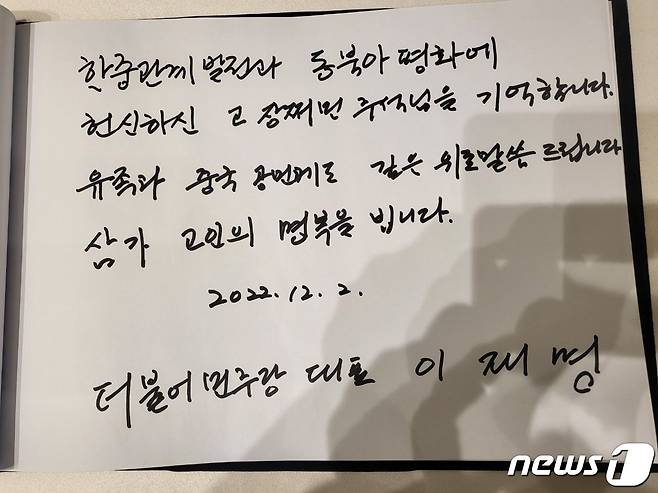 한중관계 발전과 동북아 평화에
헌신하신 고 장쩌민 주석님을 기억합니다.
유족과 중국 공민께도 깊은 위로말씀 드립니다
삼가 고인의 명복을 빕니다.
2022.12.2.
더불어민주당 대표 이재명
news1